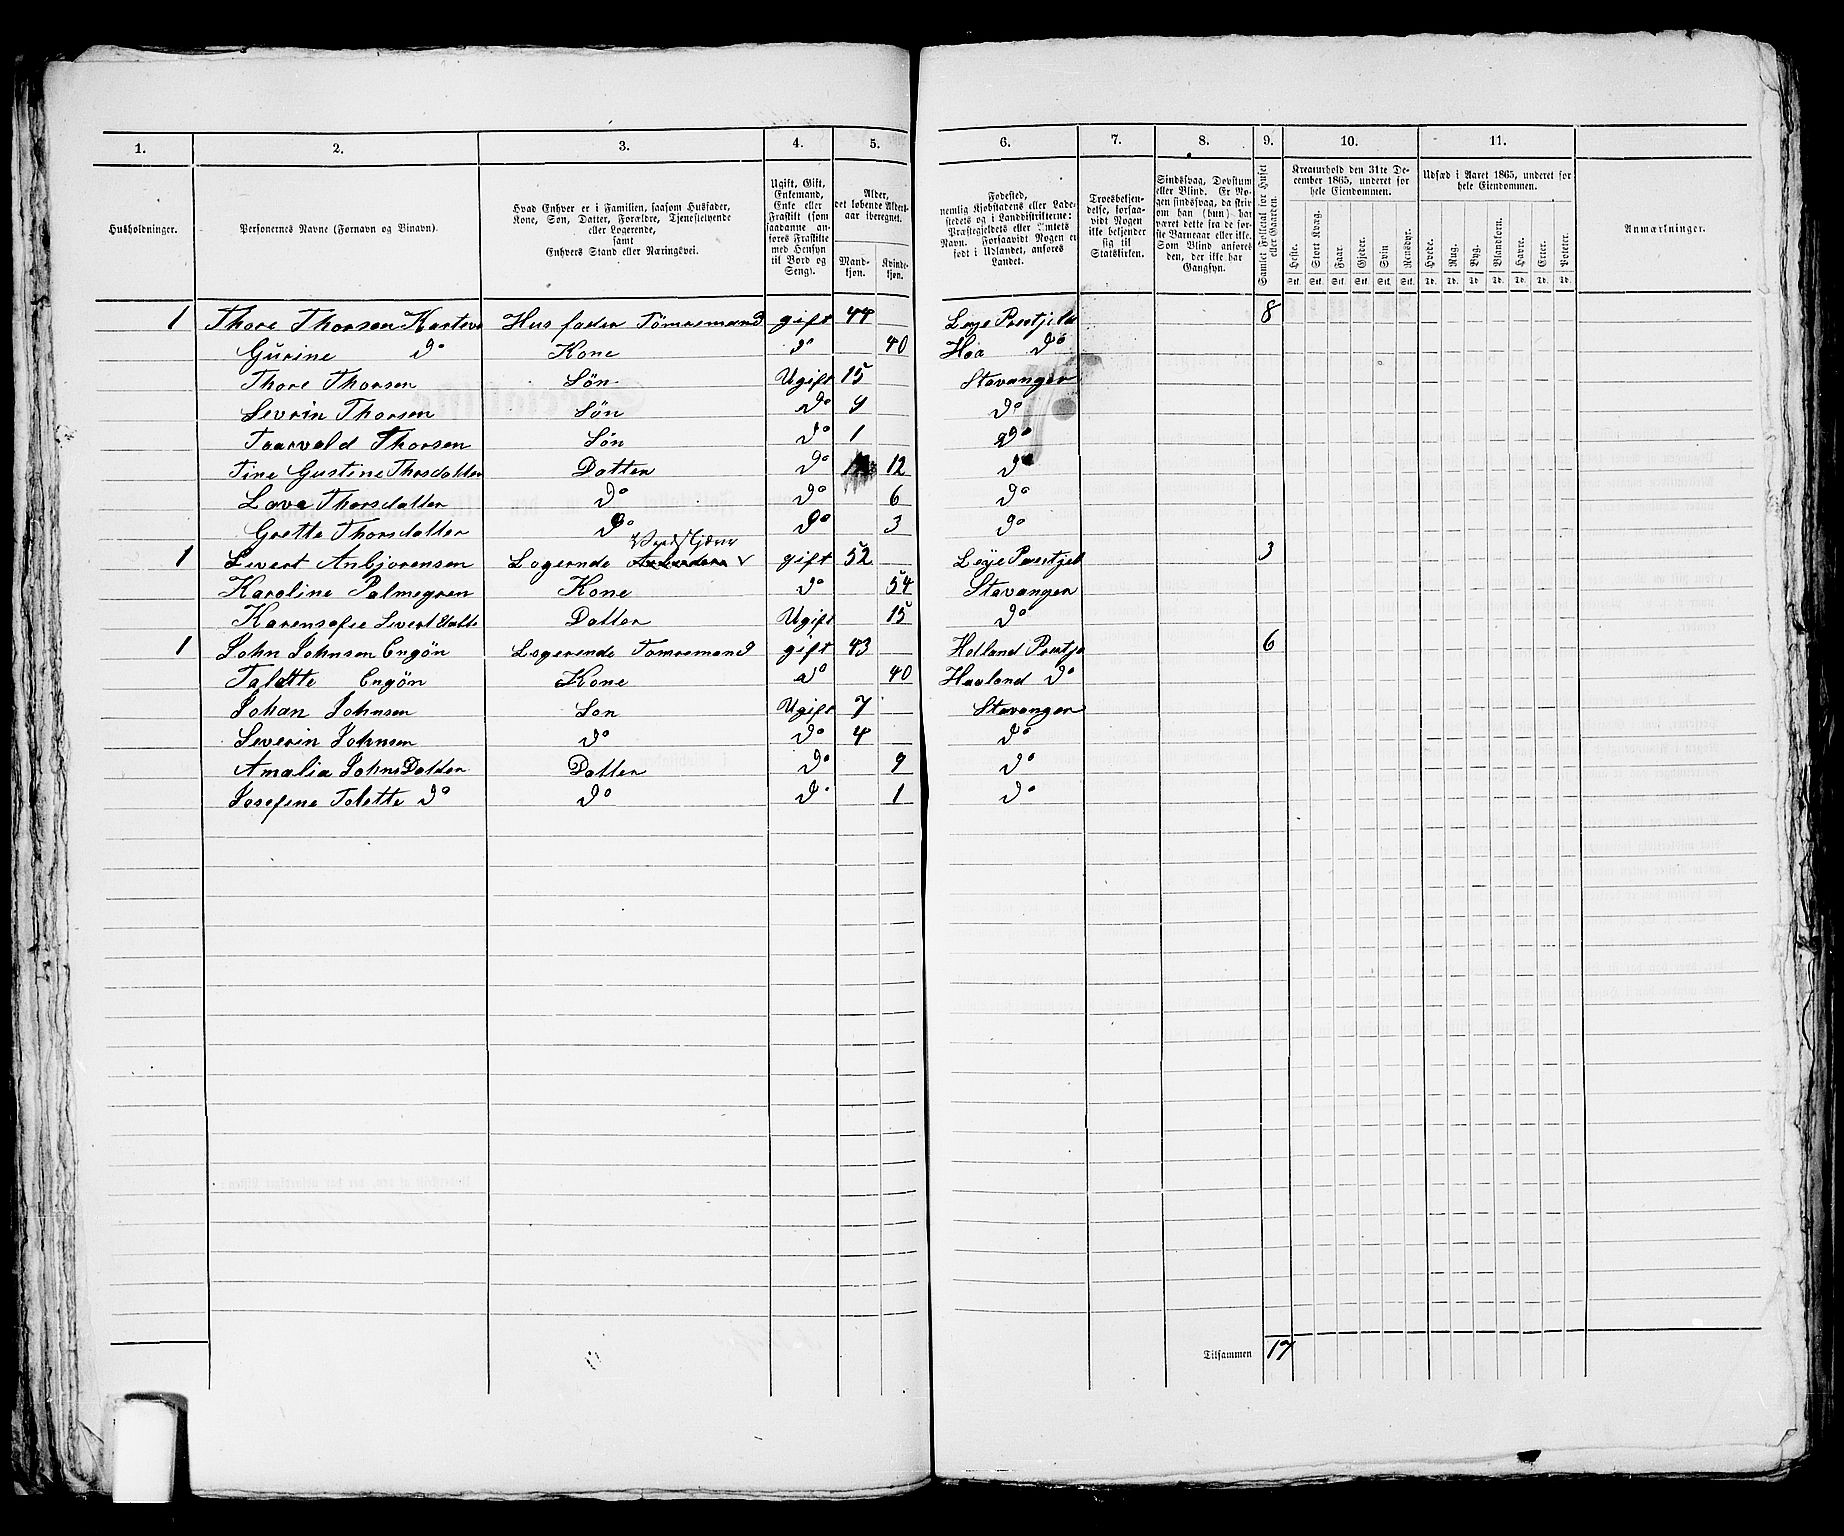 1. 2. 3. 4. 5. 6. 7. 8. 9. 10. 11.
Husholdninger.
Personernes Navne (Fornavn og Binavn).
Hvad Enhver er i Familien, saasom Husfader,
Kone, Søn, Datter, Forældre, Tjenestetyende
eller Logerende,
samt
Enhvers Stand eller Næringsvei.
Ugift, Gift,
Enkemand,
Enke eller
Fraskilt (som
saadanne an-
føres Fraskilte
med Hensyn
til Bord og
Seng).
Alder,
det løbende Alders-
aar iberegnet.
Mand-
kjøn.
Kvinde-
kjøn.
Fødested,
nemlig Kjøbstadens eller Lade-
stedets og i Landdistrikterne:
Præstegjeldets eller Amtets
Navn. Forsaavidt Nogen er
født i Udlandet, anføres
Landet.
Troesbekjen-
delse, forsaa-
vidt Nogen
ikke bekjender
sig til
Statskirken.
Sindssvag, Døvstum
eller Blind. Er No-
gen sindssvag, da skriv
om han (hun) har
været dette fra de før-
ste Barneaar eller ikke.
Som Blind anføres
den, der ikke har
Gangsyn.
Samlet Folketal for Huset
eller Gaarden.
Kreaturhold den 31te De-
cember 1865, underet for
hele Eiendommen.
Heste. Stort Kvæg. Faar. Gjeder. Svin Rensdyr.
Stk. Stk. Stk. Stk. Stk. Stk.
Udsæd i Aaret 1865, underet for
hele Eiendommen.
Hvede. Rug. Byg. Blandkorn. Havre. Erter. Poteter.
Td. Td. Td. Td. Td. Td. Td.
Anmærkninger.
1 Thore Thorsen Husfader Tømremand gift 44 8
Gurine Do Kone do 40 Do
Thore Thorsen Søn Ugift 15 Stavanger
Sevrin Thorsen Søn Do 9 Do
Taarvald Thorsen Søn Do 1 Do
Tine Gustine Thosdatter Datter Do 12 Do
Lava Thorsdatter Do Do 6 Do
Grette Thorsdatter Do Do 3 Do
1 Sivert Anbjorensen Logernde gift 52 3
Karoline Palmegren Kone do 54 Stavanger
Karensofie Sivert Datte Datter Ugift 15 Do
1 John Johnsen Engøn Logerende Tomremand gift 43 Hetland Prestje 6
Talette Engøn Kone do 40 Haaland Do
Johan Johnsen Son Ugift 7 Stavanger
Severin Johnsen do Do 4 Do
Amalia Johns Datter Datter Do 9 Do
Josefine Talette Do Do Do 1 Do
Tilsammen 17